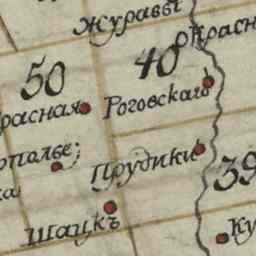 Журавы
Красн
50
40
расная
Роговскаго
ополье;
Прудики
39
ка
Шацкъ
Ку